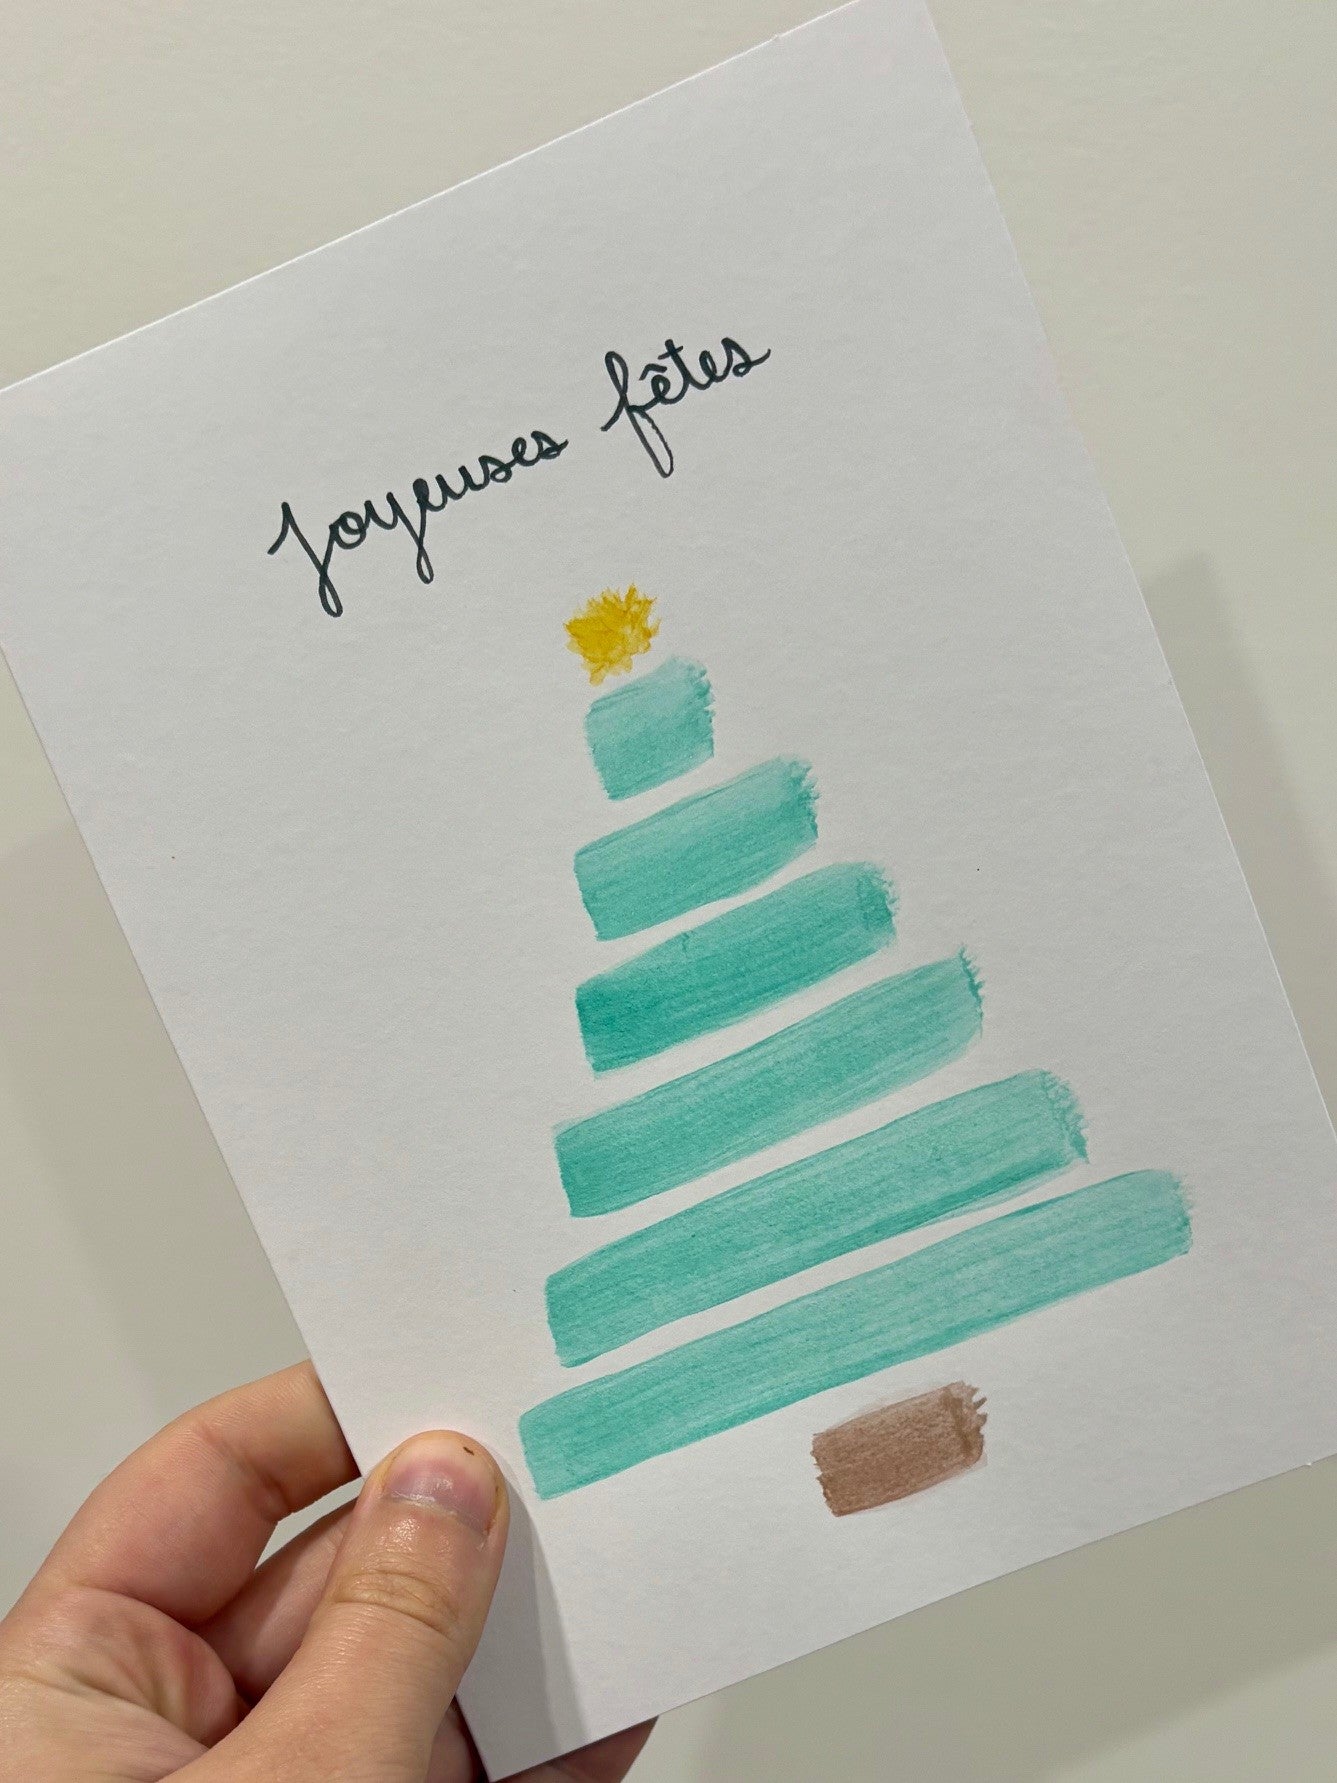 Joyeuses fêtes